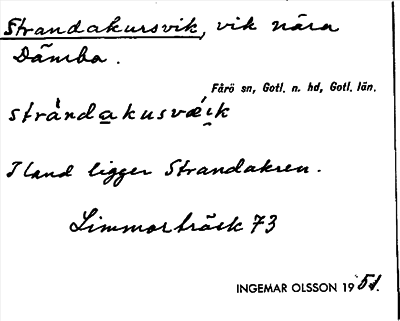 Strandakursvik, vik nära
Dämba.
Fårö sn, Gotl. n. hd, Gotl. län.
strånd a kusvæik
I land ligger Strandakren.
Limmorträsk 73
INGEMAR OLSSON 1951.